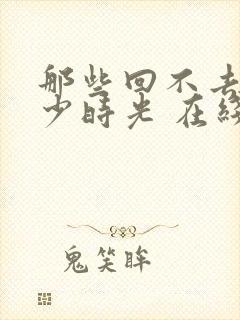 那些回不去
少时光 在
鬼笑眸